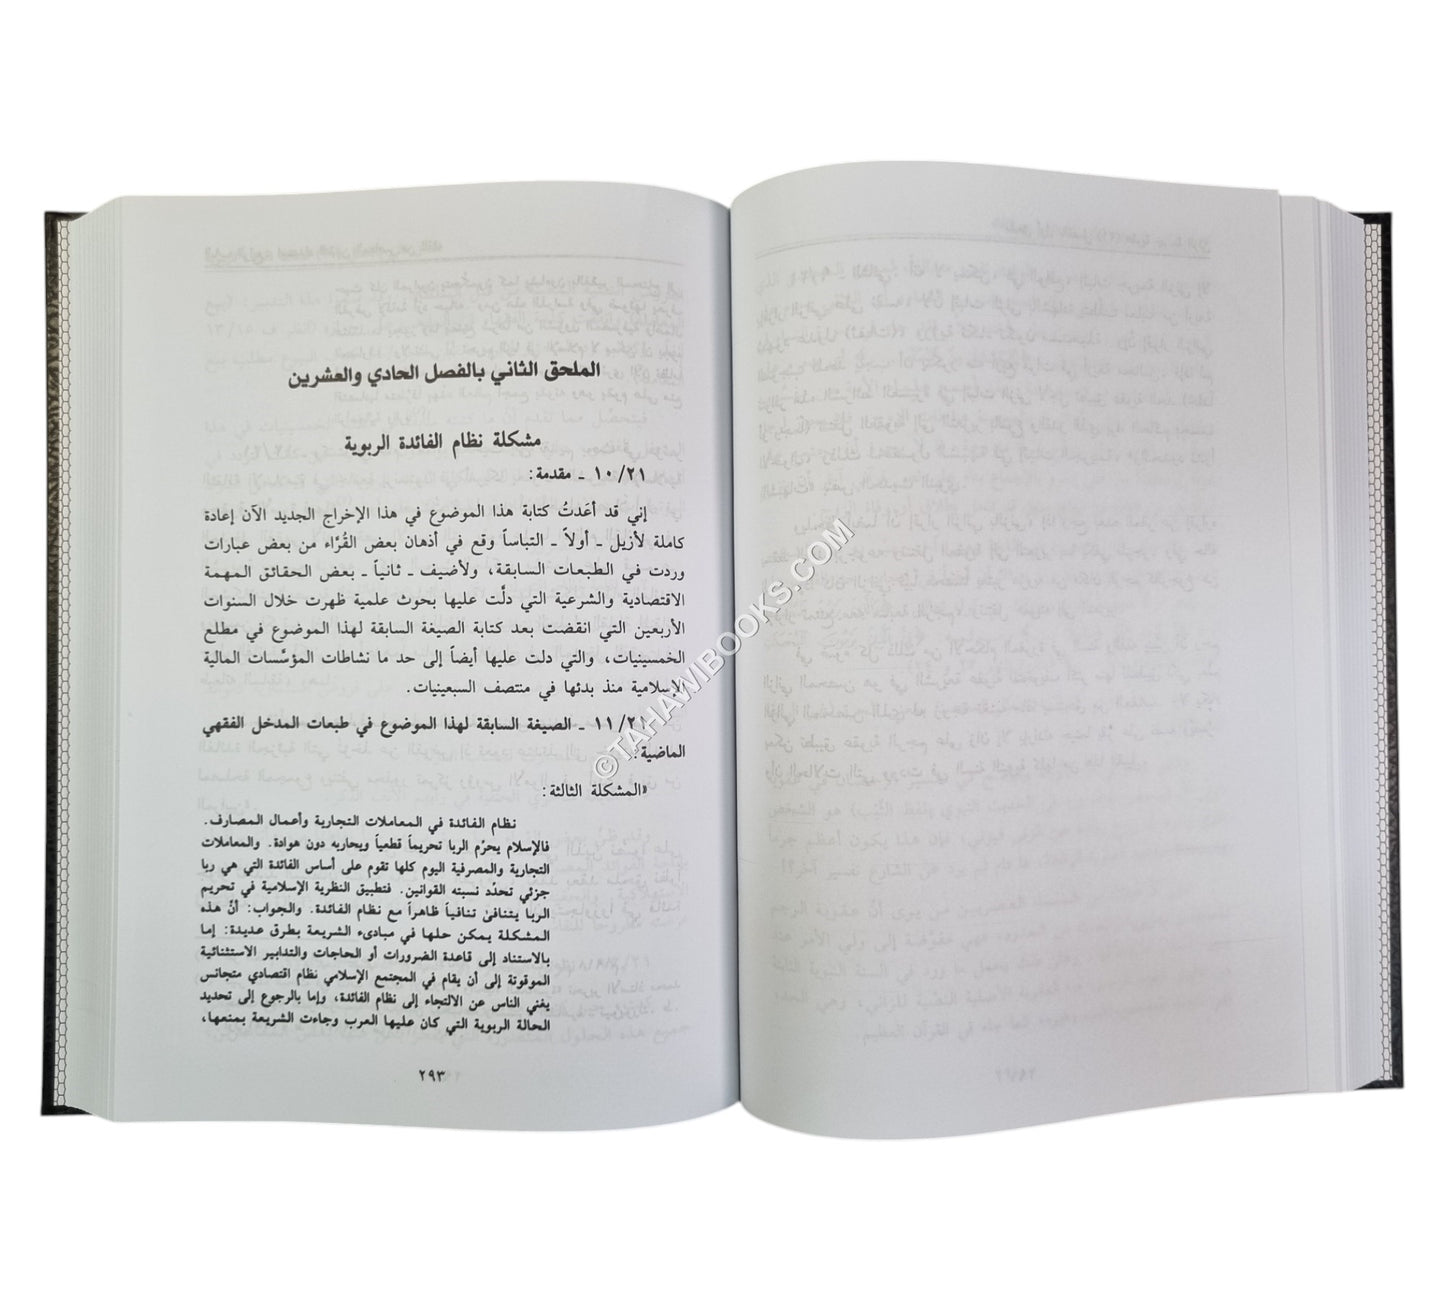 الملحق الثاني بالفصل الحادي والعشرين
مشكلة نظام الفائدة الربوية
١٠/٢١ ـ مقدمة:
إني قد أعَدتُ كتابة هذا الموضوع في هذا الإخراج الجديد الآن إعادة
كاملة لأزيل ـ أولاً ـ التباساً وقع في أذهان بعض القُرَّاء من بعض عبارات
وردت في الطبعات السابقة، ولأضيف ـ ثانياً ـ بعض الحقائق المهمة
الاقتصادية والشرعية التي دلَّت عليها بحوث علمية ظهرت خلال السنوات
الأربعين التي انقضت بعد كتابة الصيغة السابقة لهذا الموضوع في مطلع
الخمسينيات، والتي دلت عليها أيضاً إلى حد ما نشاطات المؤسَّسات المالية
الإسلامية منذ بدئها في منتصف السبعينيات.
١١/٢١ ـ الصيغة السابقة لهذا الموضوع في طبعات المدخل الفقهي
الماضية:
«المشكلة الثالثة:
نظام الفائدة في المعاملات التجارية وأعمال المصارف.
فالإسلام يحرّم الربا تحريماً قطعياً ويحاربه دون هوادة. والمعاملات
التجارية والمصرفية اليوم كلها تقوم على أساس الفائدة التي هي ربا
جزئي تحدّد نسبته القوانين. فتطبيق النظرية الإسلامية في تحريم
الربا يتنافى تنافياً ظاهراً مع نظام الفائدة. والجواب: أنّ هذه
المشكلة يمكن حلها في مبادىء الشريعة بطرق عديدة: إما
بالاستناد إلى قاعدة الضرورات أو الحاجات والتدابير الاستثنائية
الموقوتة إلى أن يقام في المجتمع الإسلامي نظام اقتصادي متجانس
يغني الناس عن الالتجاء إلى نظام الفائدة، وإما بالرجوع إلى تحديد
الحالة الربوية التي كان عليها العرب وجاءت الشريعة بمنعها،
٢٩٣
©TAHAWIBOOKS.COM